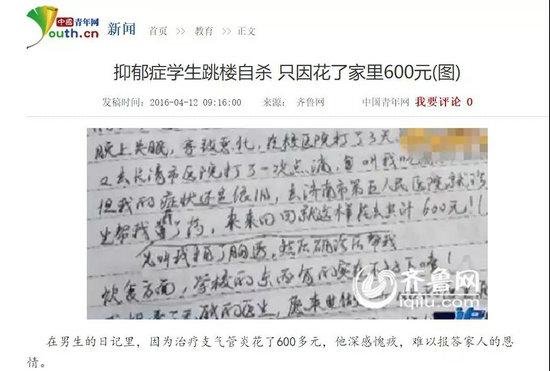 中国青年网
Youth.cn
新闻 首页 > 教育 > 正文
抑郁症学生跳楼自杀 只因花了家里600元(图)
发稿时间：2016-04-12 09:16:00 来源： 齐鲁网 中国青年网 我要评论 0
晚上失眠，在校医院打了3天
又去长清市医院打了一次点滴，
但我的症状还是依旧，去济南市第五人民医院就诊
生帮我药，来来回回就这样花去共计600元！！
先叫我拍了胸透，然后确诊后帮我
饮食方面，学校的东西
的医生，原来
齐鲁网
iqilu.com
在男生的日记里，因为治疗支气管炎花了600多元，他深感愧疚，难以报答家人的恩
情。